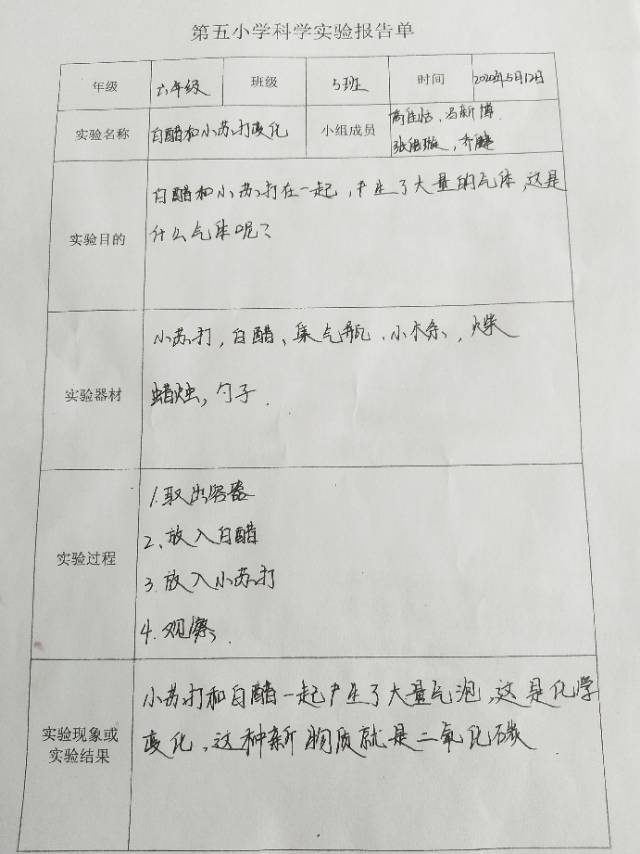 第五小学科学实验报告单
年级 六年级 班级 5班 时间 2020年5月12日
实验名称 白醋和小苏打变化 小组成员 冯新博
实验目的
白醋和小苏打在一起，产生了大量的气体，这是
什么气体呢？
实验器材
小苏打，白醋、集气瓶、小木条，火柴
蜡烛，勺子．
实验过程
1.取出容器
2、放入白醋
3.放入小苏打
4.观察
实验现象或
实验结果
小苏打和白醋一起产生了大量气泡，这是化学
变化，这种新物质就是二氧化碳